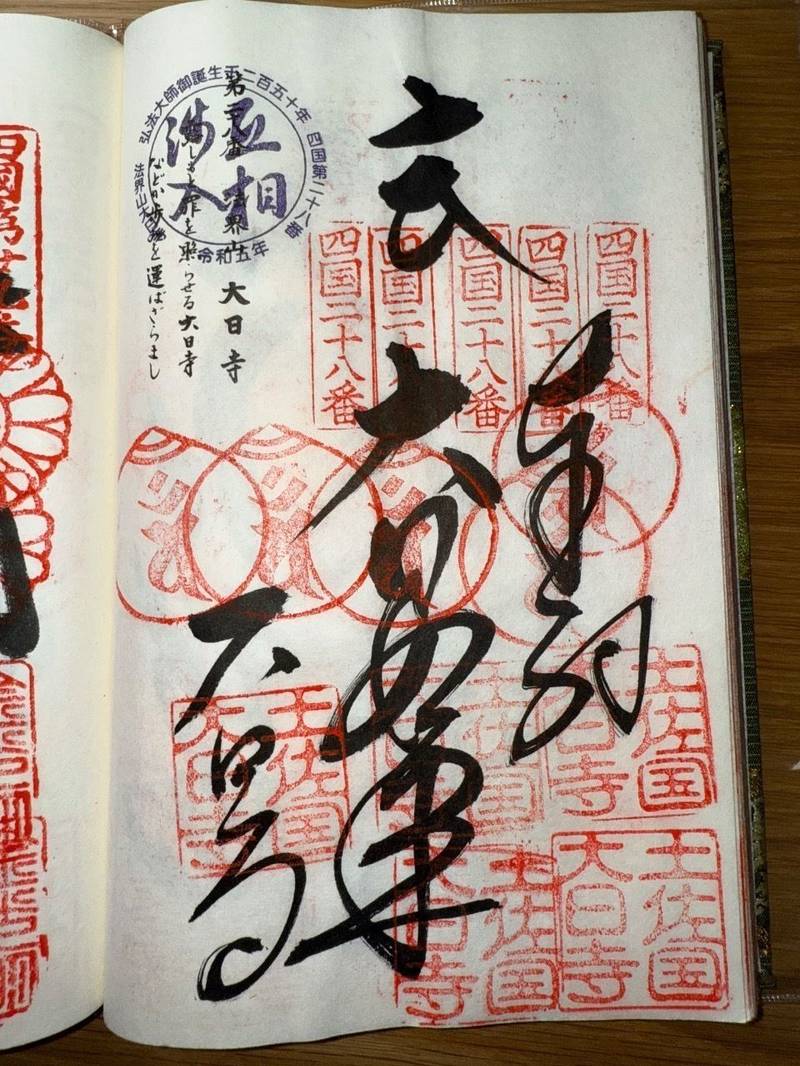 四国二十八番
四国二十八番
四国二十八番
四国二十八番
四国二十八番
奉納
大日如来
大日寺
弘法大師御誕生千二百五十年
四国第二十八番
令和五年
法界山大日寺
互相
渉入
第二十八番 法界山 大日寺
罪を照らせる大日寺
などか歩みを運ばざらまし
土佐国
大日寺
土佐国
大日寺
土佐国
大日寺
土佐国
大日寺
土佐国
大日寺
四國第